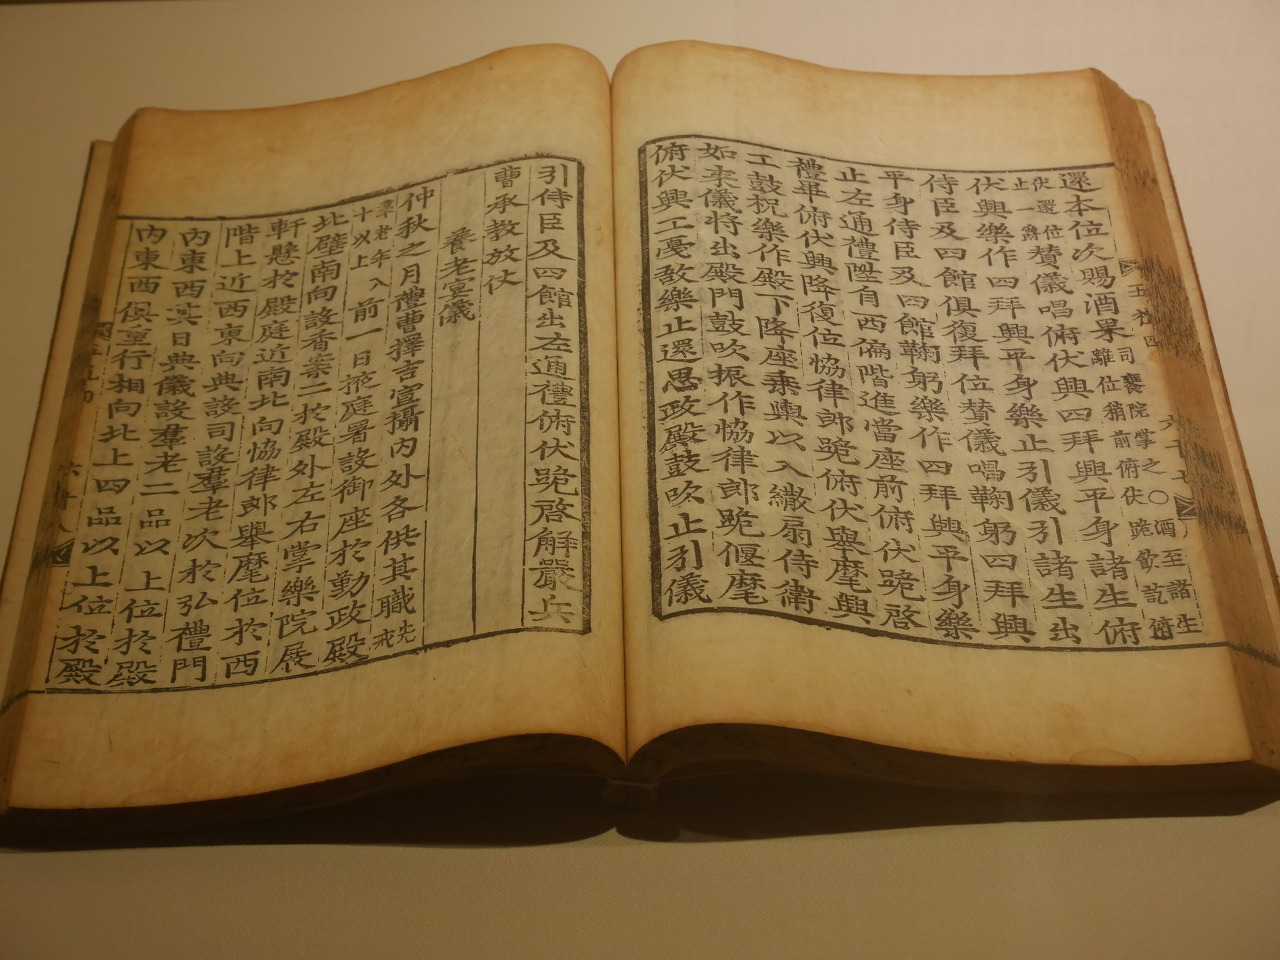 還本位次賜酒果司饔院掌之○酒至諸生離位稍前俯伏跪飮訖俯
伏還位止一爵贊儀唱俯伏興四拜興平身諸生俯
伏興樂作四拜興平身樂止引儀引諸生出
侍臣及四館俱復拜位贊儀唱鞠躬四拜興
平身侍臣及四館鞠躬樂作四拜興平身樂
止左通禮陞自西偏階進當座前俯伏跪啓
禮畢俯伏興降復位協律郎跪俯伏擧麾興
工鼓柷樂作殿下降座乘輿以入繖扇侍衛
如來儀將出殿門鼓吹振作協律郎跪偃麾
俯伏興工戞敔樂止還思政殿鼓吹止引儀
引侍臣及四館出左通禮俯伏跪啓解嚴兵
曹承敎放仗
養老宴儀
仲秋之月禮曹擇吉宣攝內外各供其職先戒
羣老年八十以上前一日掖庭署設御座於勤政殿
北壁南向設香案二於殿外左右掌樂院展
軒懸於殿庭近南北向協律郎擧麾位於西
階上近西東向典設司設羣老次於弘禮門
內東西其日典儀設羣老二品以上位於殿
內東西俱重行相向北上四品以上位於殿